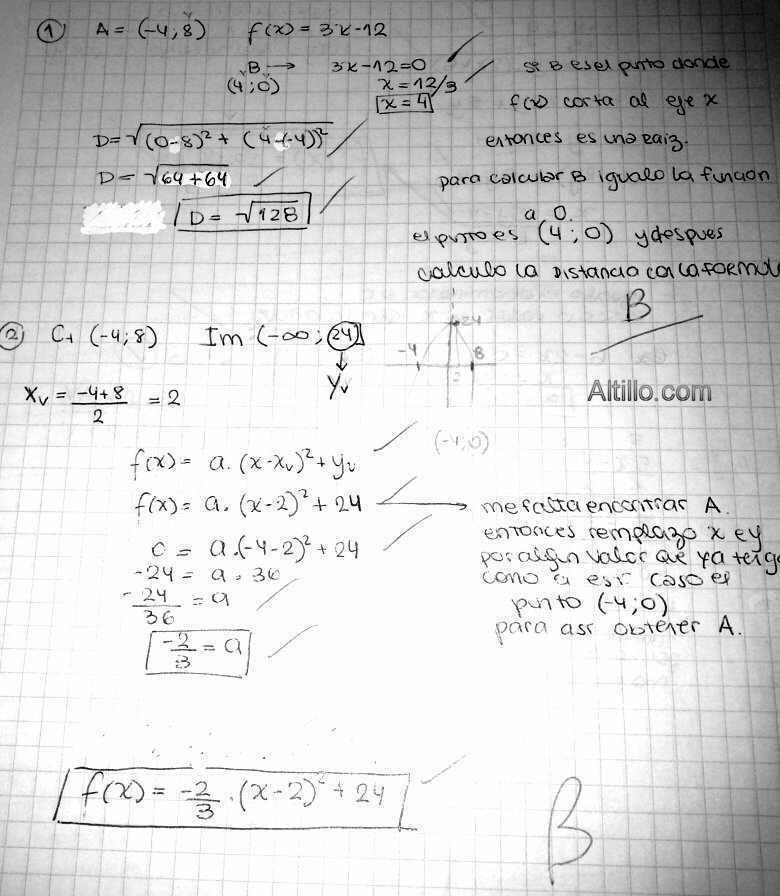 ① A = (-4; 8) f(x) = 3x-12
B → 3x-12=0 si B es el punto donde
(4; 0) x = 12/3
x = 4 f(x) corta al eje x
D = √(0-8)² + (4-(-4))² entonces es una raiz.
D = √64+64 para calcular B igualo la funcion
D = √128 a 0.
el punto es (4; 0) y despues
calculo la Distancia con la formula
B
② C+ (-4; 8) Im (-∞; 24] 24
-4 8
↓
Yv
Altillo.com
Xv = -4+8/2 = 2
(-4,0)
f(x) = a. (x-xv)² + yv
f(x) = a. (x-2)² + 24 → me falta encontrar A.
entonces remplazo x e y
0 = a.(-4-2)² + 24 por algun valor que ya tengo
-24 = a . 36
-24/36 = a punto (-4; 0)
-2/3 = a para asi obtener A.
f(x) = -2/3 . (x-2)² + 24
B